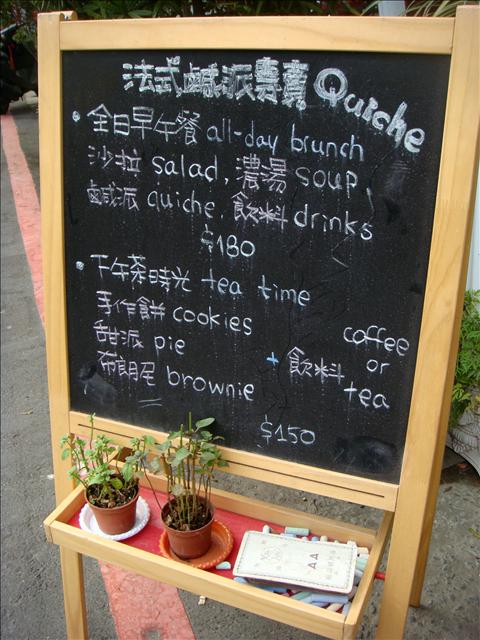 法式鹹派專賣 Quiche
• 全日早午餐 all-day brunch
沙拉 salad, 濃湯 soup,
鹹派 quiche, 飲料 drinks
$180
• 下午茶時光 tea time
手作餅 cookies
甜派 pie
布朗尼 brownie
+ 飲料 coffee or tea
$150